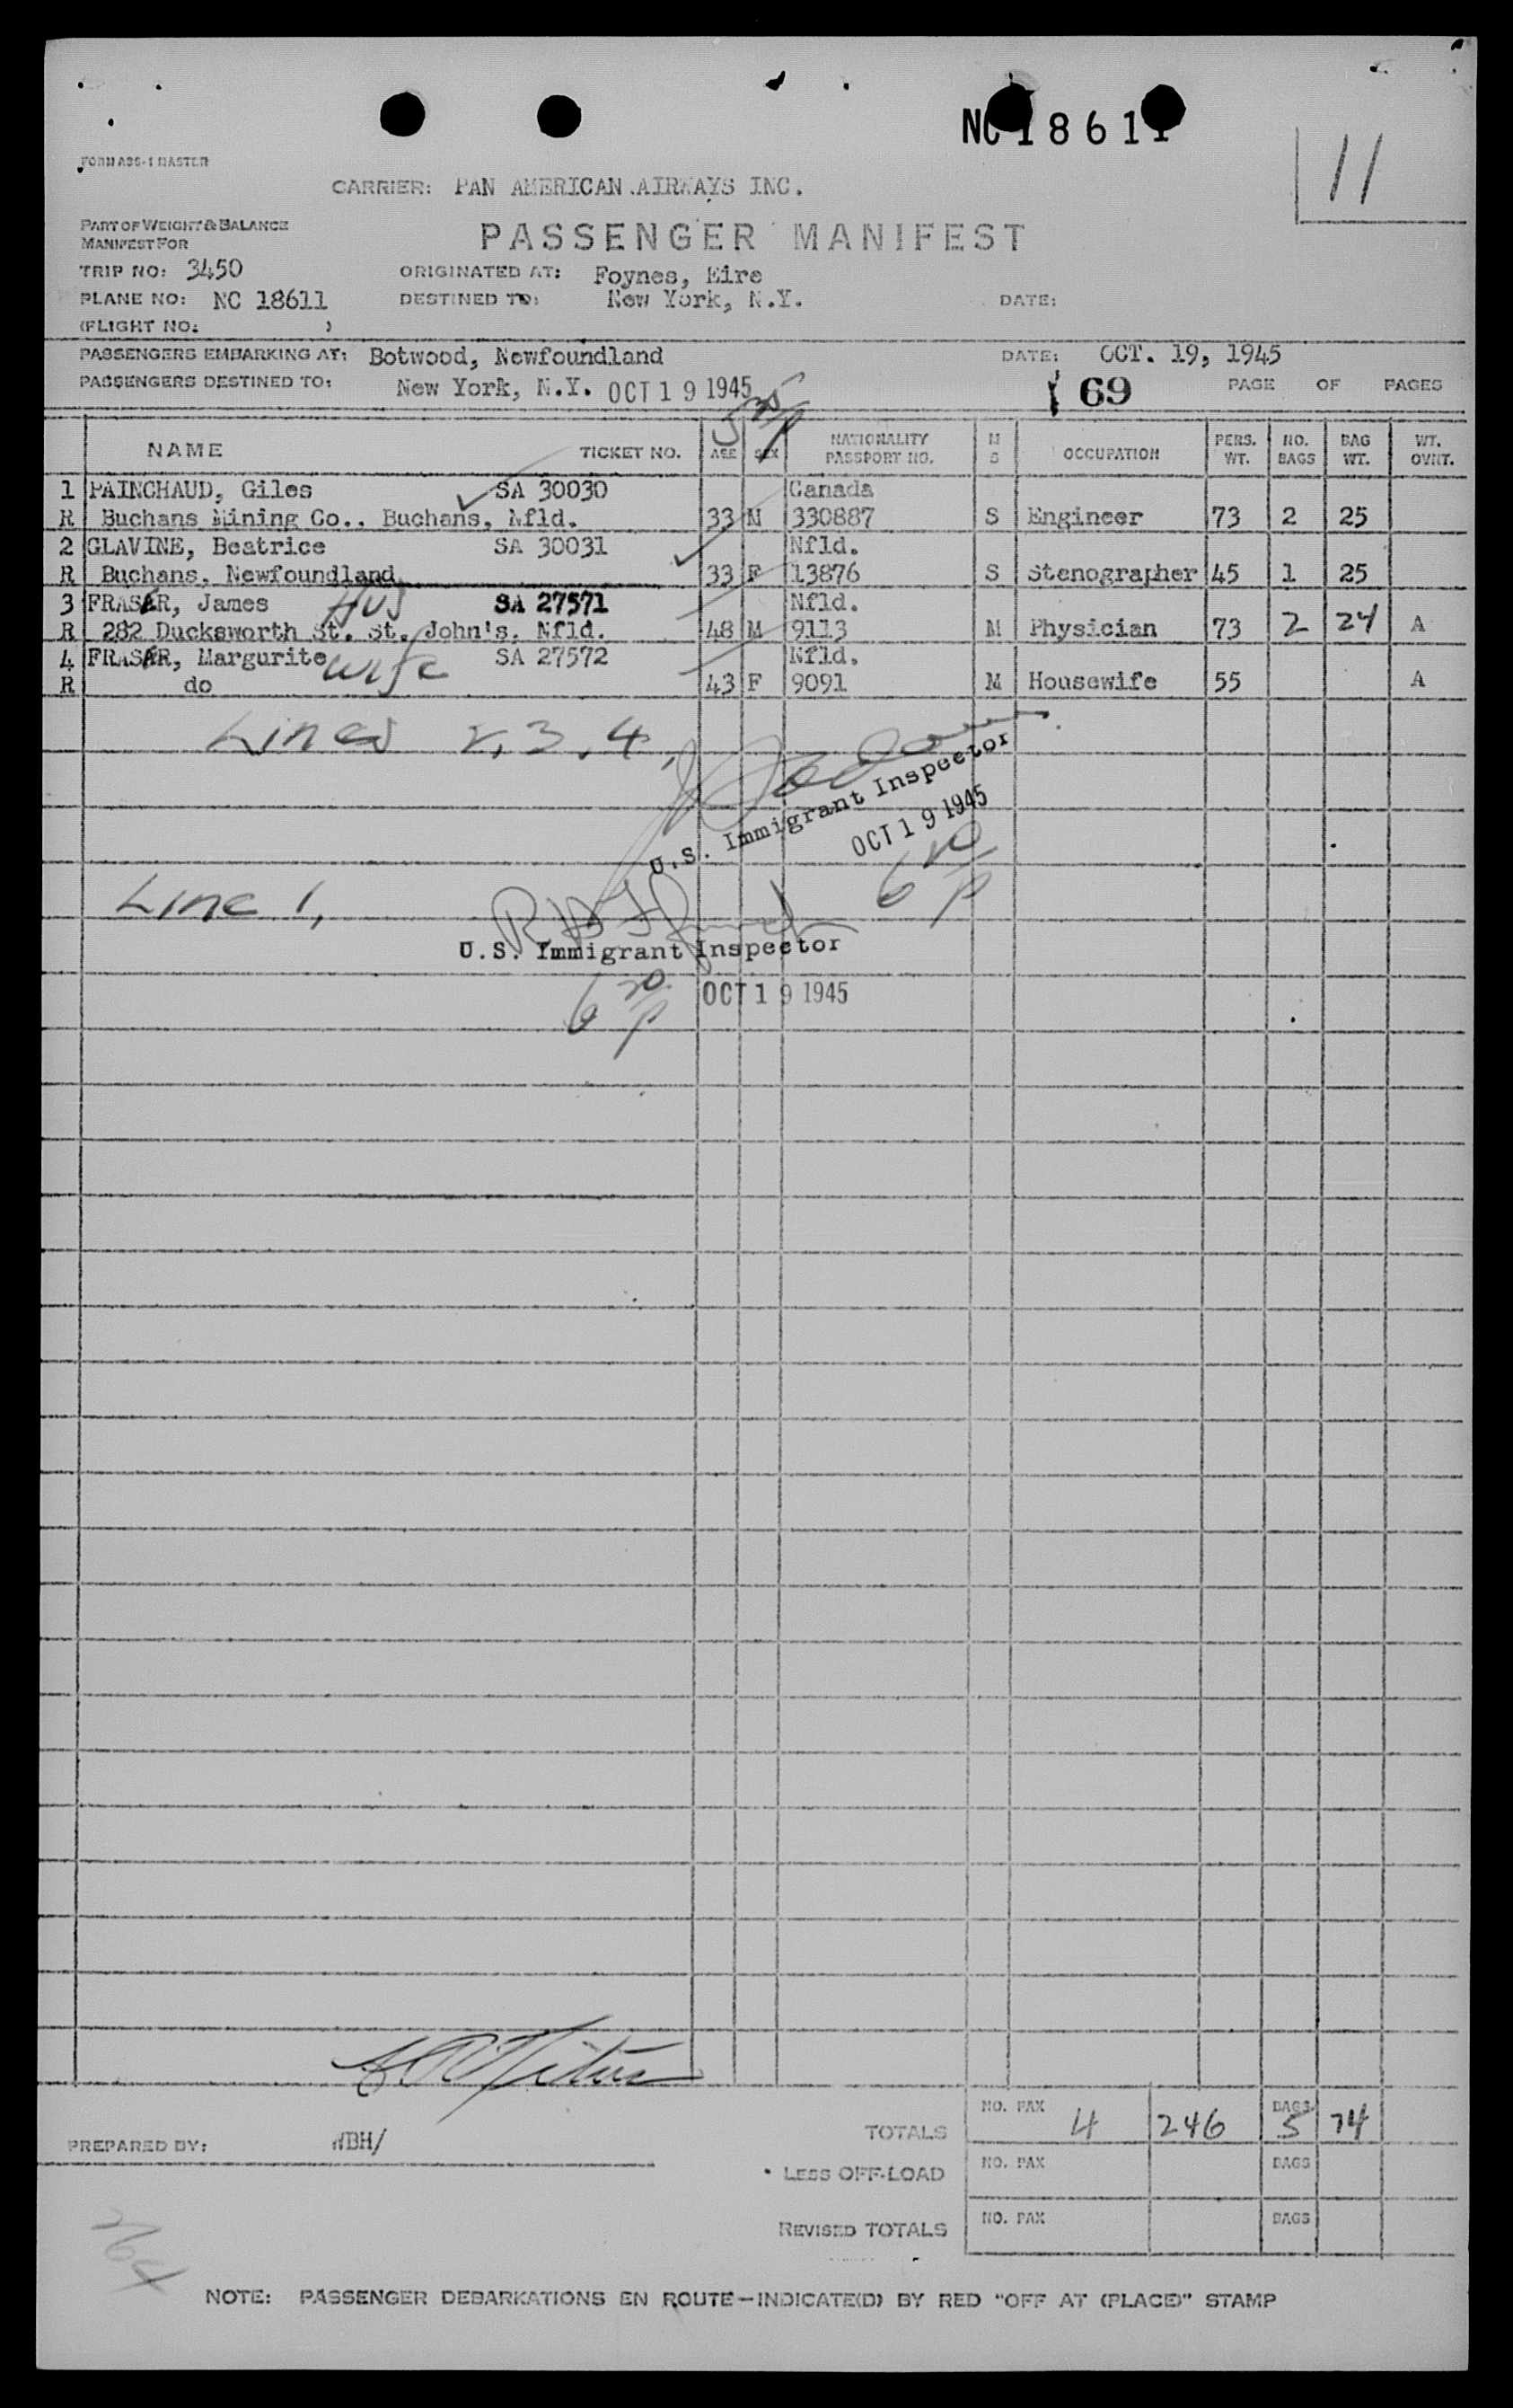 NC 18611
11
FORM ASS-1 MASTER
CARRIER: PAN AMERICAN AIRWAYS INC.
PART OF WEIGHT & BALANCE
MANIFEST FOR
PASSENGER MANIFEST
TRIP NO: 3450 ORIGINATED AT: Foynes, Eire
PLANE NO: NC 18611 DESTINED TO: New York, N.Y. DATE:
(FLIGHT NO: )
PASSENGERS EMBARKING AT: Botwood, Newfoundland DATE: OCT. 19, 1945
PASSENGERS DESTINED TO: New York, N.Y. OCT 19 1945 69 PAGE OF PAGES
NAME TICKET NO. AGE SEX NATIONALITY PASSPORT NO. M S OCCUPATION PERS. WT. NO. BAGS BAG WT. WT. OVNT.
1 PAINCHAUD, Giles SA 30030 Canada
R Buchans Mining Co., Buchans, Nfld. 33 M 330887 S Engineer 73 2 25
2 GLAVINE, Beatrice SA 30031 Nfld.
R Buchans, Newfoundland 33 F 13876 S Stenographer 45 1 25
3 FRASER, James Hus SA 27571 Nfld.
R 282 Ducksworth St. St. John's, Nfld. 48 M 9113 M Physician 73 2 24 A
4 FRASER, Margurite wife SA 27572 Nfld.
R do 43 F 9091 M Housewife 55 A
Lines 2, 3, 4,
U.S. Immigrant Inspector
OCT 19 1945
6 20 P
Line 1,
U.S. Immigrant Inspector
6 20 P OCT 19 1945
TOTALS NO. PAX 4 246 BAGS 5 74
PREPARED BY: WBH/
LESS OFF-LOAD NO. PAX BAGS
REVISED TOTALS NO. PAX BAGS
NOTE: PASSENGER DEBARKATIONS EN ROUTE—INDICATE(D) BY RED "OFF AT (PLACE)" STAMP